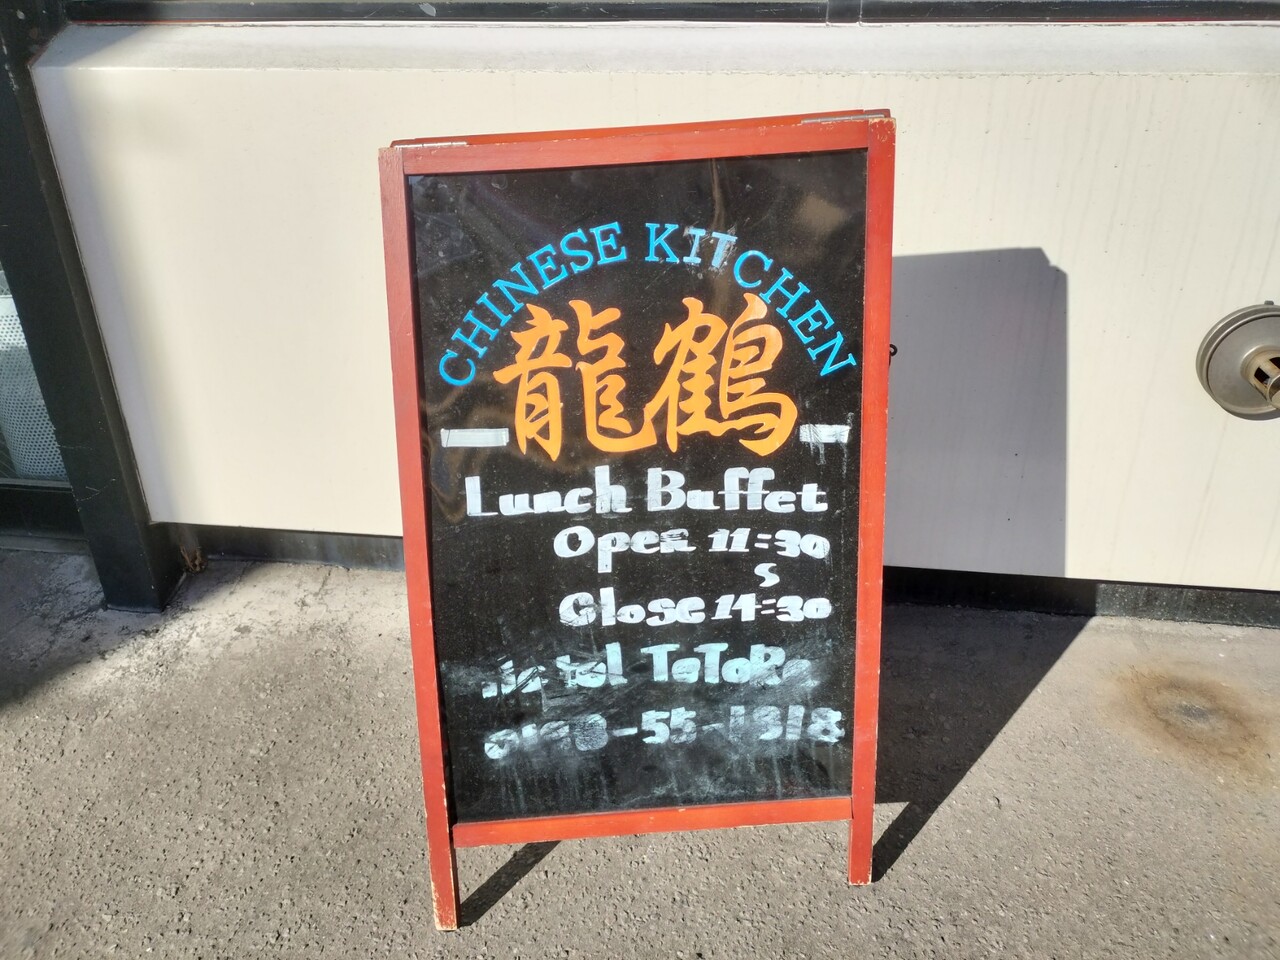 CHINESE KITCHEN
龍鶴
Lunch Buffet
Open 11:30
S
Glose 14:30
ToToRo
-55-1318